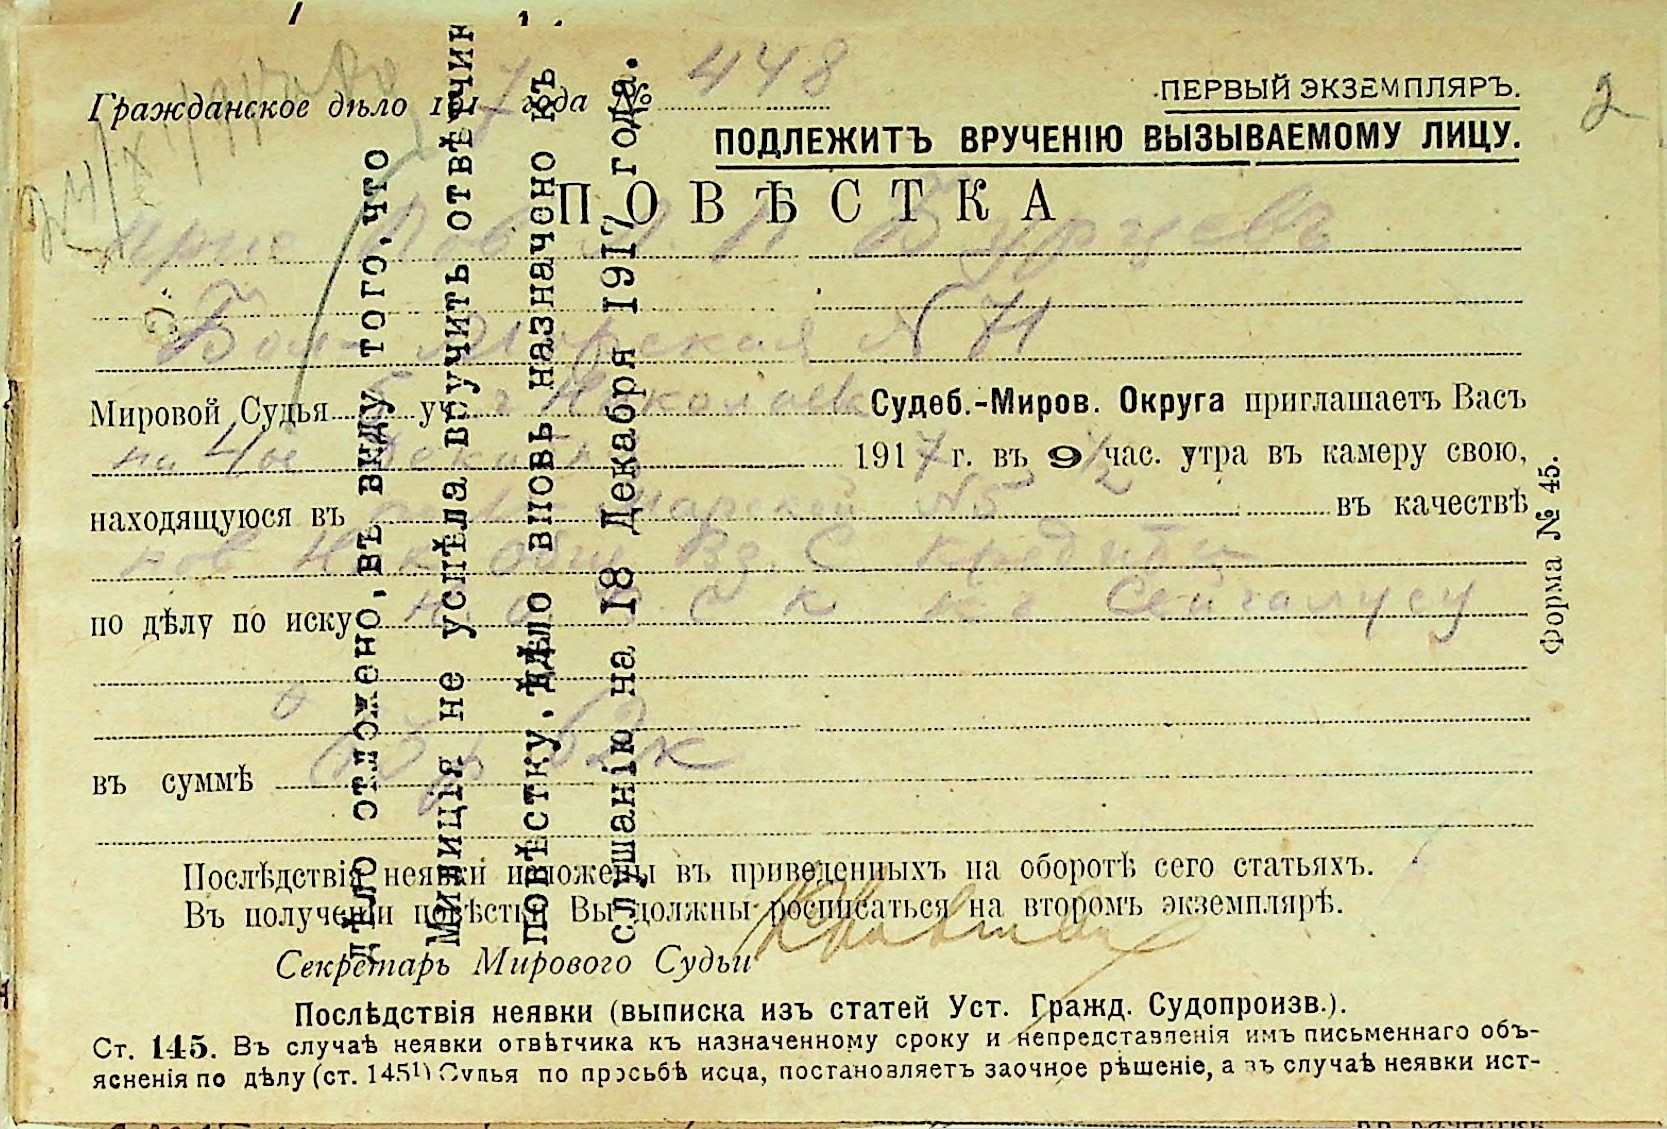 Гражданское дѣло 1917 года № 448
ПЕРВЫЙ ЭКЗЕМПЛЯРЪ.
2
ПОДЛЕЖИТЪ ВРУЧЕНІЮ ВЫЗЫВАЕМОМУ ЛИЦУ.
ПОВѢСТКА
Прис Пов
Бол- Морская N 71
Мировой Судья 5 уч г Николаев Судеб.-Миров. Округа приглашаетъ Васъ
на 4ое 1917 г. въ 9 1/2 час. утра въ камеру свою,
находящуюся въ Морской N5 въ качествѣ
пов Ник Общ Вз. С кредита
по дѣлу по иску Н О В С К къ
въ суммѣ
Послѣдствія неявки изложены въ приведенныхъ на оборотѣ сего статьяхъ.
Въ полученіи повѣстки Вы должны росписаться на второмъ экземплярѣ.
Секретарь Мирового Судьи
Послѣдствія неявки (выписка изъ статей Уст. Гражд. Судопроизв.).
Ст. 145. Въ случаѣ неявки отвѣтчика къ назначенному сроку и непредставленія имъ письменнаго объ-
ясненія по дѣлу (ст. 145¹) Судья по просьбѣ исца, постановляетъ заочное рѣшеніе, а въ случаѣ неявки ист-
Форма № 45.
Дѣло отложено, въ виду того, что
Милиція не успѣла вручить отвѣтчик
повѣстку. Дѣло вновь назначено къ
слушанію на 18 Декабря 1917 года.